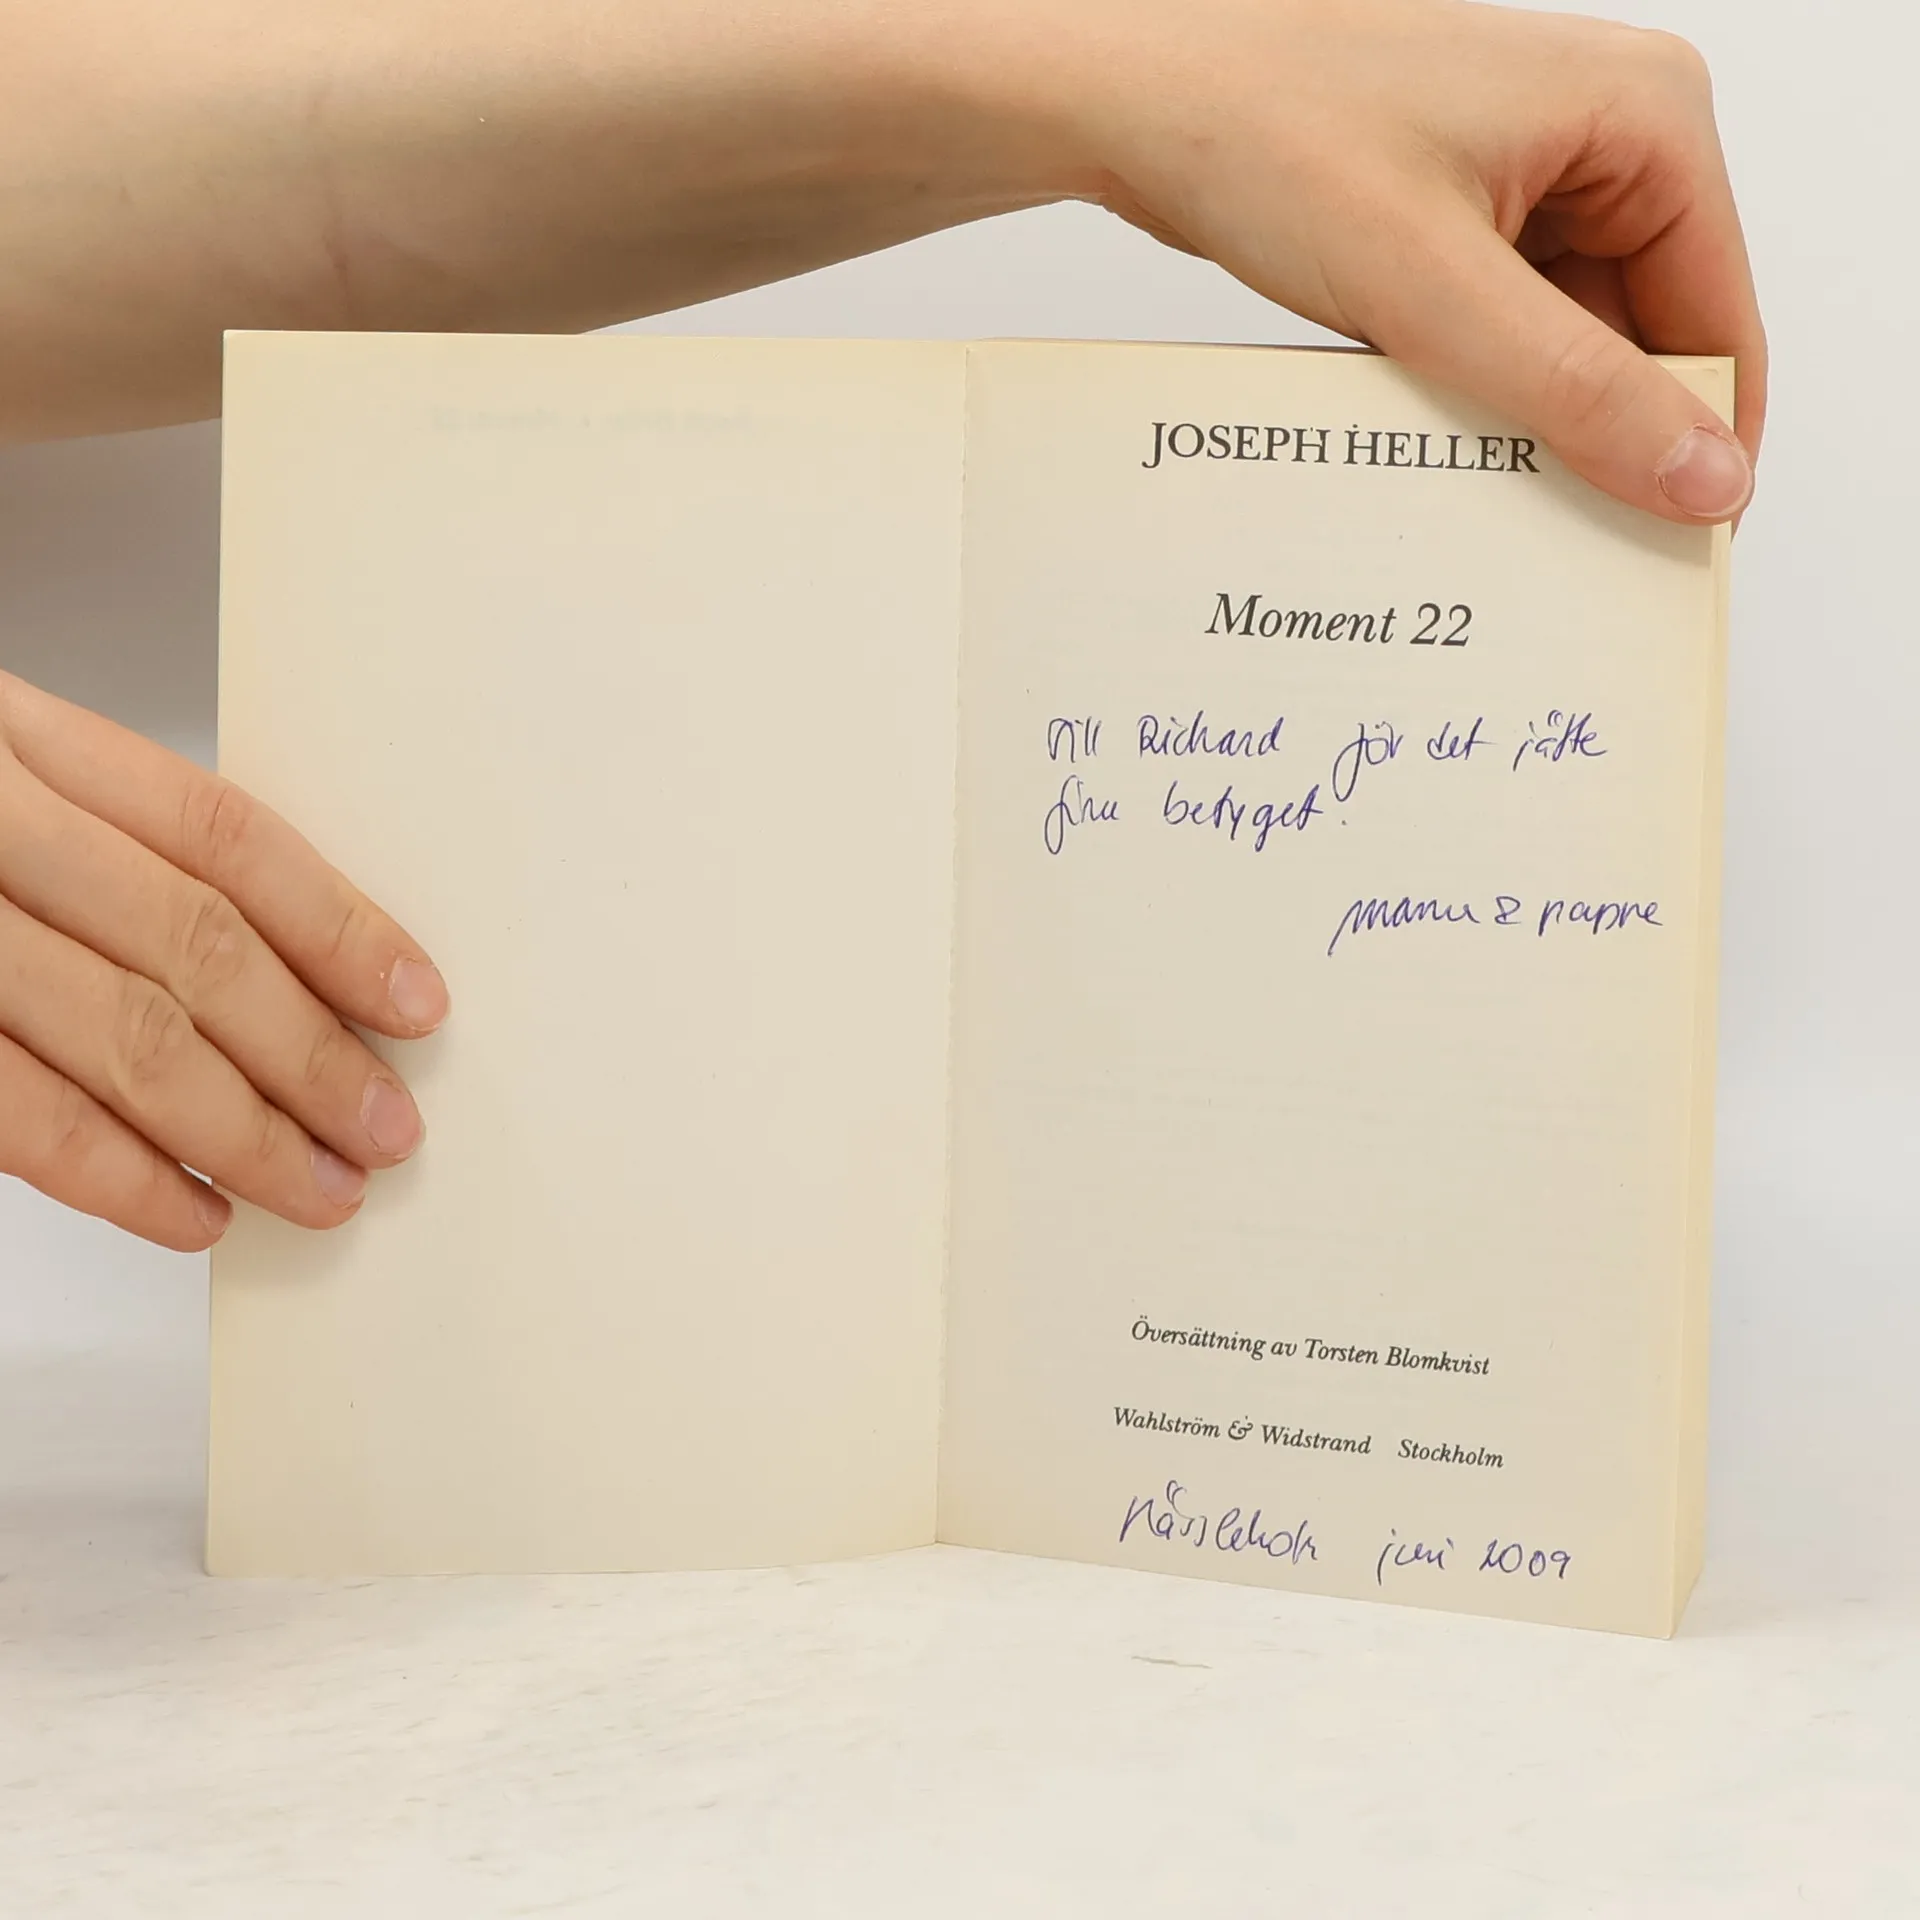 JOSEPH HELLER
Moment 22
Till Richard för det jätte
fina betyget.
mama & pappa
Översättning av Torsten Blomkvist
Wahlström & Widstrand Stockholm
juni 2009